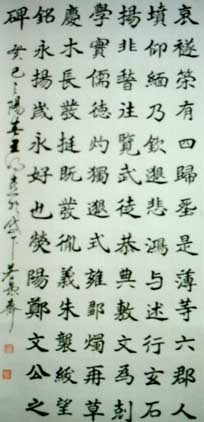 哀襚策有四歸丞是薄等六郡人
墳仰緬乃欽遐悲鴻与述行玄石
揚非瞽注覽式徒恭典敷文為刻
學實儒德灼獨遐式雍郡燭再草
慶木長發挺既發俶義朱襲綬望
銘永揚歲永好也熒陽鄭文公之
碑
癸巳之陽